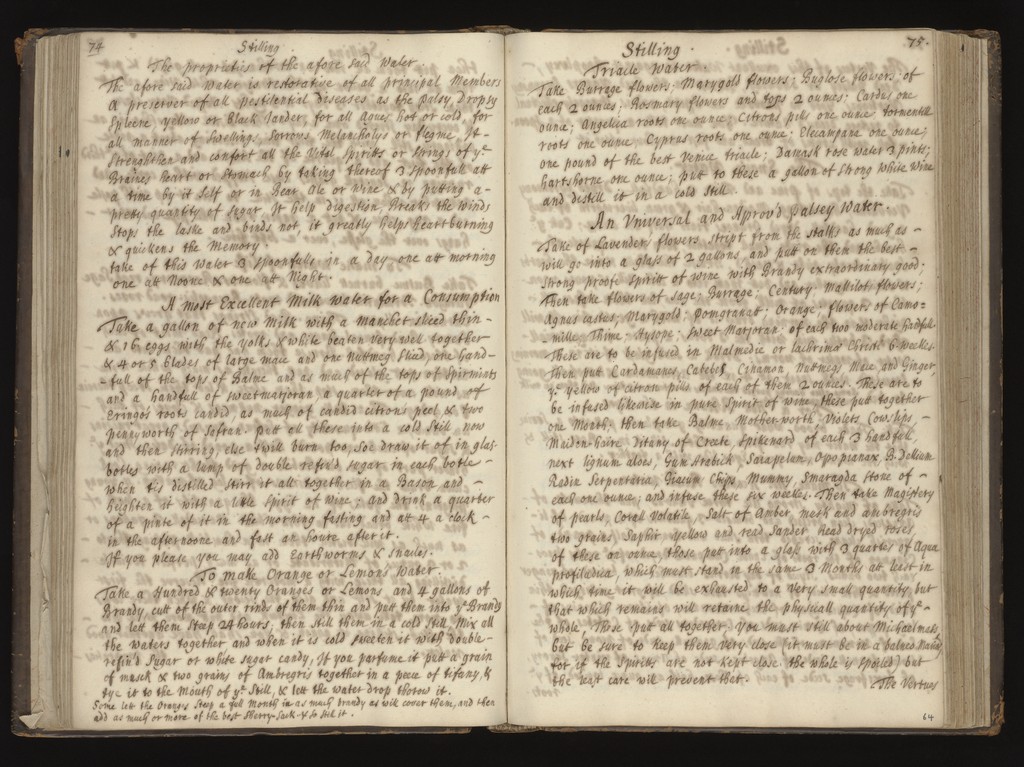 74
Stilling
The proprieties of the afore said Water
The afore said Water is restorative of all principal Members
A preserver of all pestilential diseases as the palsy, dropsy
Spleene yellow or Black Jander, for all Agues hot or cold, for
all manner of Swellings Sorrows Melancholys or flegme, It
Strenghthen and comfort all the Vital Spiritts or strings of yᵉ
Braines heart or Stomach by taking thereof 3 spoonfull att
a time by it self or in Bear Ale or Wine & by putting a-
pretty quantity of Sugar It help digestion, Breaks the winds
Stops the laske and binds not, it greatly helps heart burning
& quickens the Memory.
take of this Water 3 spoonfulls in a day one att morning
one att Noone & one att Night.
A most Excellent Milk water for a Consumption
Take a gallon of new Milk with a Manchet sliced thin-
& 16 eggs with the yolks & white beaten very well together
& 4 or 5 blades of large mace and one Nuttmeg sliced, one hand-
-full of the tops of Balme and as much of the tops of Spirmints
and a handfull of sweetmarjoran, a quarter of a pound of
Eringos roots candid, as much of candid citrons peel, & two
penny worth of Safran. Putt all these into a cold Still, now
and then stirring, else twill burn too, Soe draw it of in glas-
botles with a lump of double refin'd sugar in each botle-
when tis distilled stirr it all together in a Bason and-
heighten it with a little spirit of wine: and Drink a quarter
of a pinte of it in the morning fasting and att 4 a clock-
in the afternoone and fast an houre after it.
If you please you may add Earthworms & Snailes.
To make Orange or Lemons Water.
Take a Hundred & twenty Oranges or Lemons and 4 gallons of
Brandy, cutt of the outer rinds of them thin and putt them into yᵉ Brandy
and lett them Steep 24 hours, then still them in a cold Still, Mix all
the waters together and when it is cold sweeten it with double-
refin'd Sugar or white sugar candy, If you parfume it putt a grain
of musck & two grains of Ambregris together in a piece of tifany, &
tye it to the Mouth of yᵉ Still, & lett the water drop thorow it.
Some lett the Oranges Steep a full Month in as much brandy as will cover them, and then
add as much or more of the best Sherry-Sack & so Still it.
75.
Stilling.
Triacle Water.
Take Burrage flowers; Marygold flowers; Buglose flowers; of
each 2 ounces; Rosmary flowers and tops 2 ounces; Cardus one
ounce; Angelica roots one ounce; Citrons pills one ounce, tormentill
roots one ounce Cyprus roots one ounce. Elecampane one ounce;
one pound of the best Venice triacle; Damask rose water 3 pints;
hartshorne one ounce; putt to these a gallon of Strong White Wine
and destill it in a cold Still.
An Vniversal and Aprov'd palsey Water.
Take of Lavender flowers stript from the stalks as much as-
will go into a glass of 2 gallons and putt on them the best-
strong proofe Spiritt of wine with Brandy extraordinary good;
Then take flowers of Sage; Burrage; Century; Mallilot flowers;
Agnus castus; Marygold; Pomgranatt; Orange; flowers of Camo-
-mille; Thime; Hysope; Sweet Marjoran: of each two moderate hadfull
These are to be infused in Malmedie or lachrimæ Christi 6 weekes.
Then putt Cardamanus, Cubebes, Cinamon, Nuttmegs, Mace and Ginger,
yᵉ yellow of citron pills of each of them 2 ounces. These are to
be infused likewise in pure Spirit of wine, these put together
one Month; then take Balme, Motherworth, Violets, Cowslips,-
Maiden-haire, Ditany of Creete, Spikenard of each 3 handfull,
next lignum aloes, Gum Arabick, Sarapelum, Opopianax, B.Delium
Radin Serpentaria, Giacum Chips, Mummy, Smaragda stone of-
each one ounce; and infuse these six weekes. Then take Magistery
of pearls, Corall Volatile, Salt of Amber, musk and ambregris
two grains, Saphir, yellow and red Sander, Read dryed roses,
of these an ounce, those put into a glass with 3 quartes of Aqua
protiladica, which must stand in the same 3 Months att least in
which time it will be exhausted to a very small quantity, but
that which remains will retaine the physicall quantity of yᵉ-
whole, Those put all together. You must still about Michaelmass,
but be sure to keep them very close (it must be in a balneo Mariæ)
for if the Spirits are not kept close the whole is spoiled) but
the least care will prevent that.
The Vertues
64